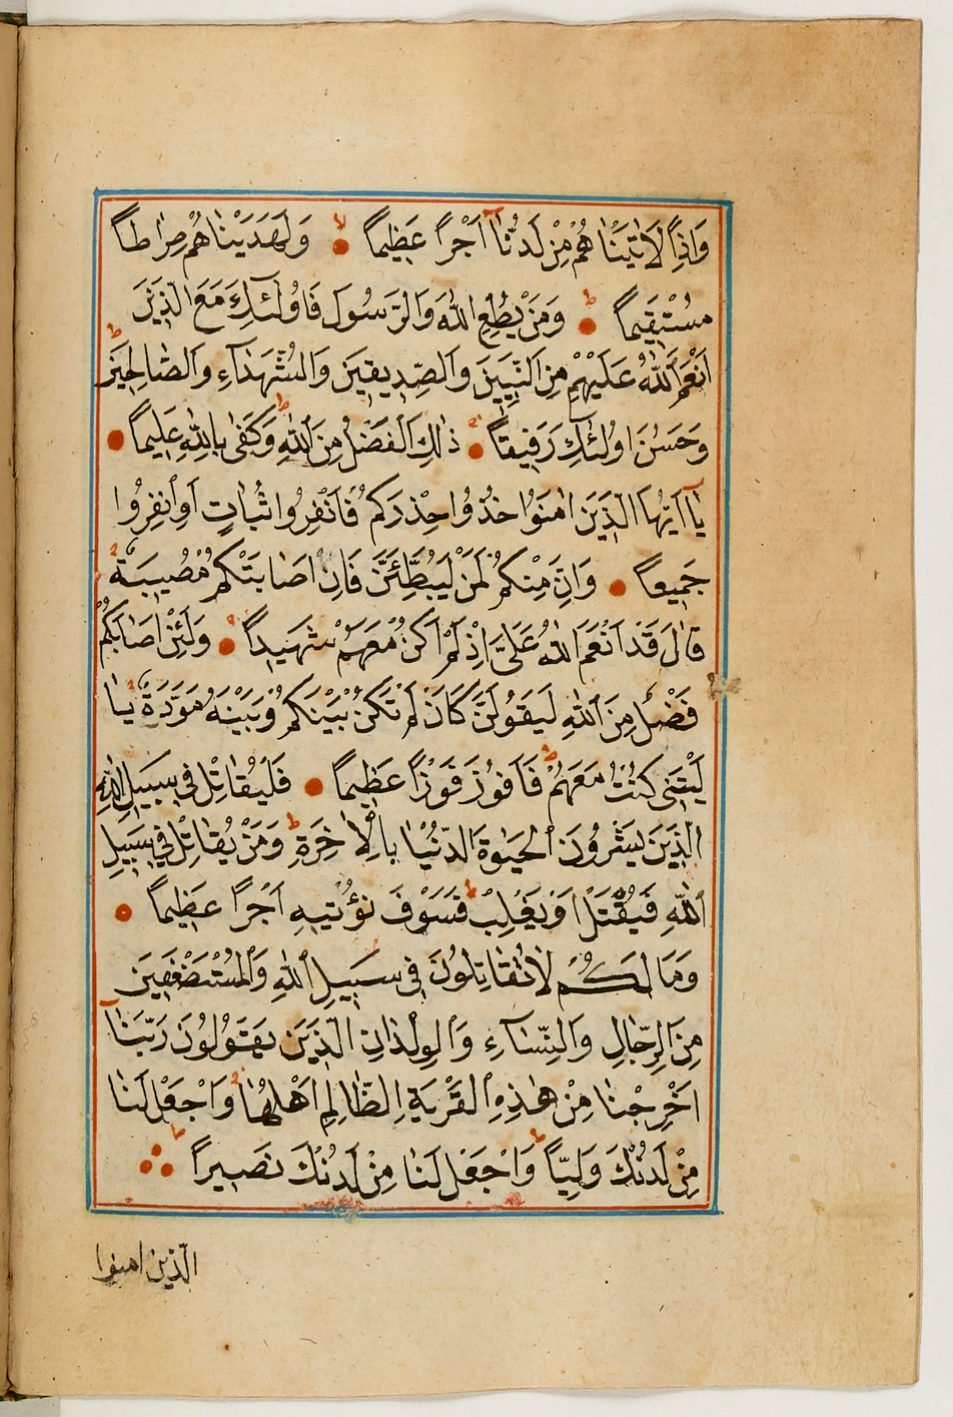 وَاِذًا لَاٰتَيْنَاهُمْ مِنْ لَدُنَّٓا اَجْرًا عَظِيمًا ۙ وَلَهَدَيْنَاهُمْ صِرَاطًا
مُسْتَقِيمًا ط وَمَنْ يُطِعِ اللّٰهَ وَالرَّسُولَ فَاُولٰٓئِكَ مَعَ الَّذِينَ
اَنْعَمَ اللّٰهُ عَلَيْهِمْ مِنَ النَّبِيّنَ وَالصِّدِّيقِينَ وَالشُّهَدَٓاءِ وَالصَّالِحِينَ ط
وَحَسُنَ اُولٰٓئِكَ رَفِيقًا ط ذٰلِكَ الْفَضْلُ مِنَ اللّٰهِ ط وَكَفٰى بِاللّٰهِ عَلِيمًا
يَٓا اَيُّهَا الَّذِينَ اٰمَنُوا خُذُوا حِذْرَكُمْ فَانْفِرُوا ثُبَاتٍ اَوِ انْفِرُوا
جَمِيعًا وَاِنَّ مِنْكُمْ لَمَنْ لَيُبَطِّئَنَّ فَاِنْ اَصَابَتْكُمْ مُصِيبَةٌ
قَالَ قَدْ اَنْعَمَ اللّٰهُ عَلَىَّ اِذْ لَمْ اَكُنْ مَعَهُمْ شَهِيدًا وَلَئِنْ اَصَابَكُمْ
فَضْلٌ مِنَ اللّٰهِ لَيَقُولَنَّ كَاَنْ لَمْ تَكُنْ بَيْنَكُمْ وَبَيْنَهُ مَوَدَّةٌ يَا
لَيْتَنِى كُنْتُ مَعَهُمْ فَاَفُوزَ فَوْزًا عَظِيمًا فَلْيُقَاتِلْ فِى سَبِيلِ اللّٰهِ
الَّذِينَ يَشْرُونَ الْحَيٰوةَ الدُّنْيَا بِالْاٰخِرَةِ ط وَمَنْ يُقَاتِلْ فِى سَبِيلِ
اللّٰهِ فَيُقْتَلْ اَوْ يَغْلِبْ ط فَسَوْفَ نُؤْتِيهِ اَجْرًا عَظِيمًا
وَمَا لَكُمْ لَا تُقَاتِلُونَ فِى سَبِيلِ اللّٰهِ وَالْمُسْتَضْعَفِينَ
مِنَ الرِّجَالِ وَالنِّسَٓاءِ وَالْوِلْدَانِ الَّذِينَ يَقُولُونَ رَبَّنَٓا
اَخْرِجْنَا مِنْ هٰذِهِ الْقَرْيَةِ الظَّالِمِ اَهْلُهَا وَاجْعَلْ لَنَا
مِنْ لَدُنْكَ وَلِيًّا ط وَاجْعَلْ لَنَا مِنْ لَدُنْكَ نَصِيرًا ط
الّذين امنوا